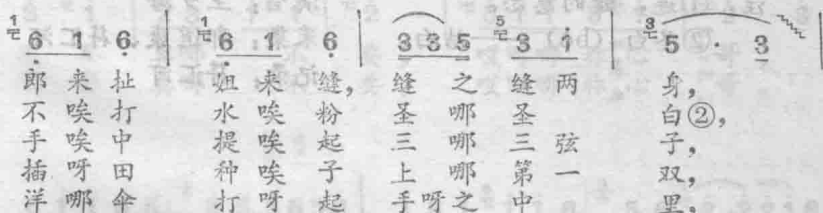 1 6 1 6 | 1 6 1 6 | 3 3 5 5 3 i | 3 5 · 3
郎来扯 妞来缝，缝之缝两身，
不唉打 水唉粉圣哪圣 白②，
手唉中 提唉起三哪三弦子，
插呀田 种唉子上哪第一双，
洋哪伞 打呀起手呀之中 里，